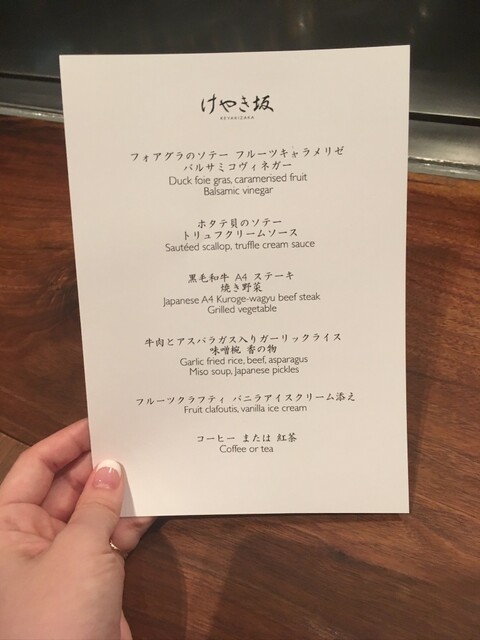 けやき坂
KEYAKIZAKA
フォアグラのソテー フルーツキャラメリゼ
バルサミコヴィネガー
Duck foie gras, caramerised fruit
Balsamic vinegar
ホタテ貝のソテー
トリュフクリームソース
Sautéed scallop, truffle cream sauce
黒毛和牛 A4 ステーキ
焼き野菜
Japanese A4 Kuroge-wagyu beef steak
Grilled vegetable
牛肉とアスパラガス入りガーリックライス
味噌椀 香の物
Garlic fried rice, beef, asparagus
Miso soup, Japanese pickles
フルーツクラフティ バニラアイスクリーム添え
Fruit clafoutis, vanilla ice cream
コーヒー または 紅茶
Coffee or tea